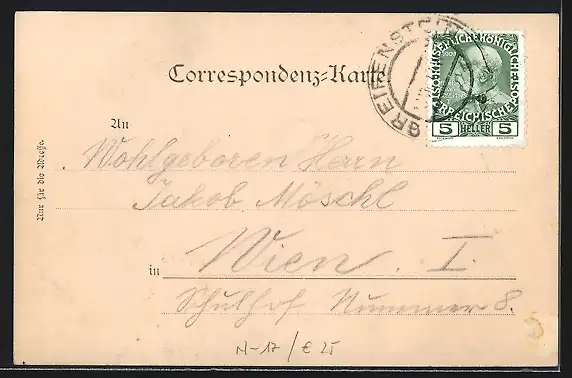 Correspondenz-Karte
GREIFENSTEIN
KAISERLICHE KÖNIGLICHE
ÖSTERREICHISCHE POST
5 HELLER 5
An
Wohlgeboren Herrn
Jakob Möschl
in Wien. I.
Schulhof Nummer 8.
Nur für die Adresse.
N-17/€ 25